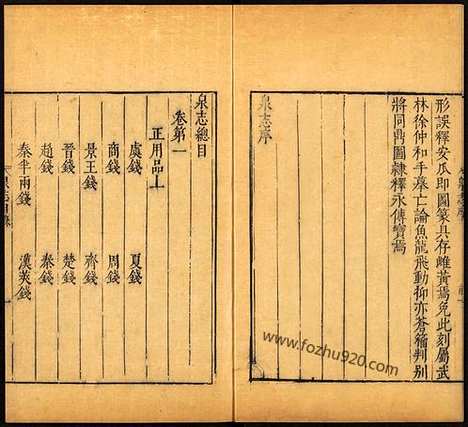 形誤釋安瓜即圖篆具存雌黃焉免此刻屬武
林徐仲和手摹亡論魚龍飛動抑亦蒼籀判别
將同鼎圖隸釋永傳寶焉
泉志序
泉志總目
卷第一
正用品上
虞錢 夏錢
商錢 周錢
景王錢 齊錢
晉錢 楚錢
趙錢 秦錢
秦半兩錢 漢莢錢
www.fozhu920.com